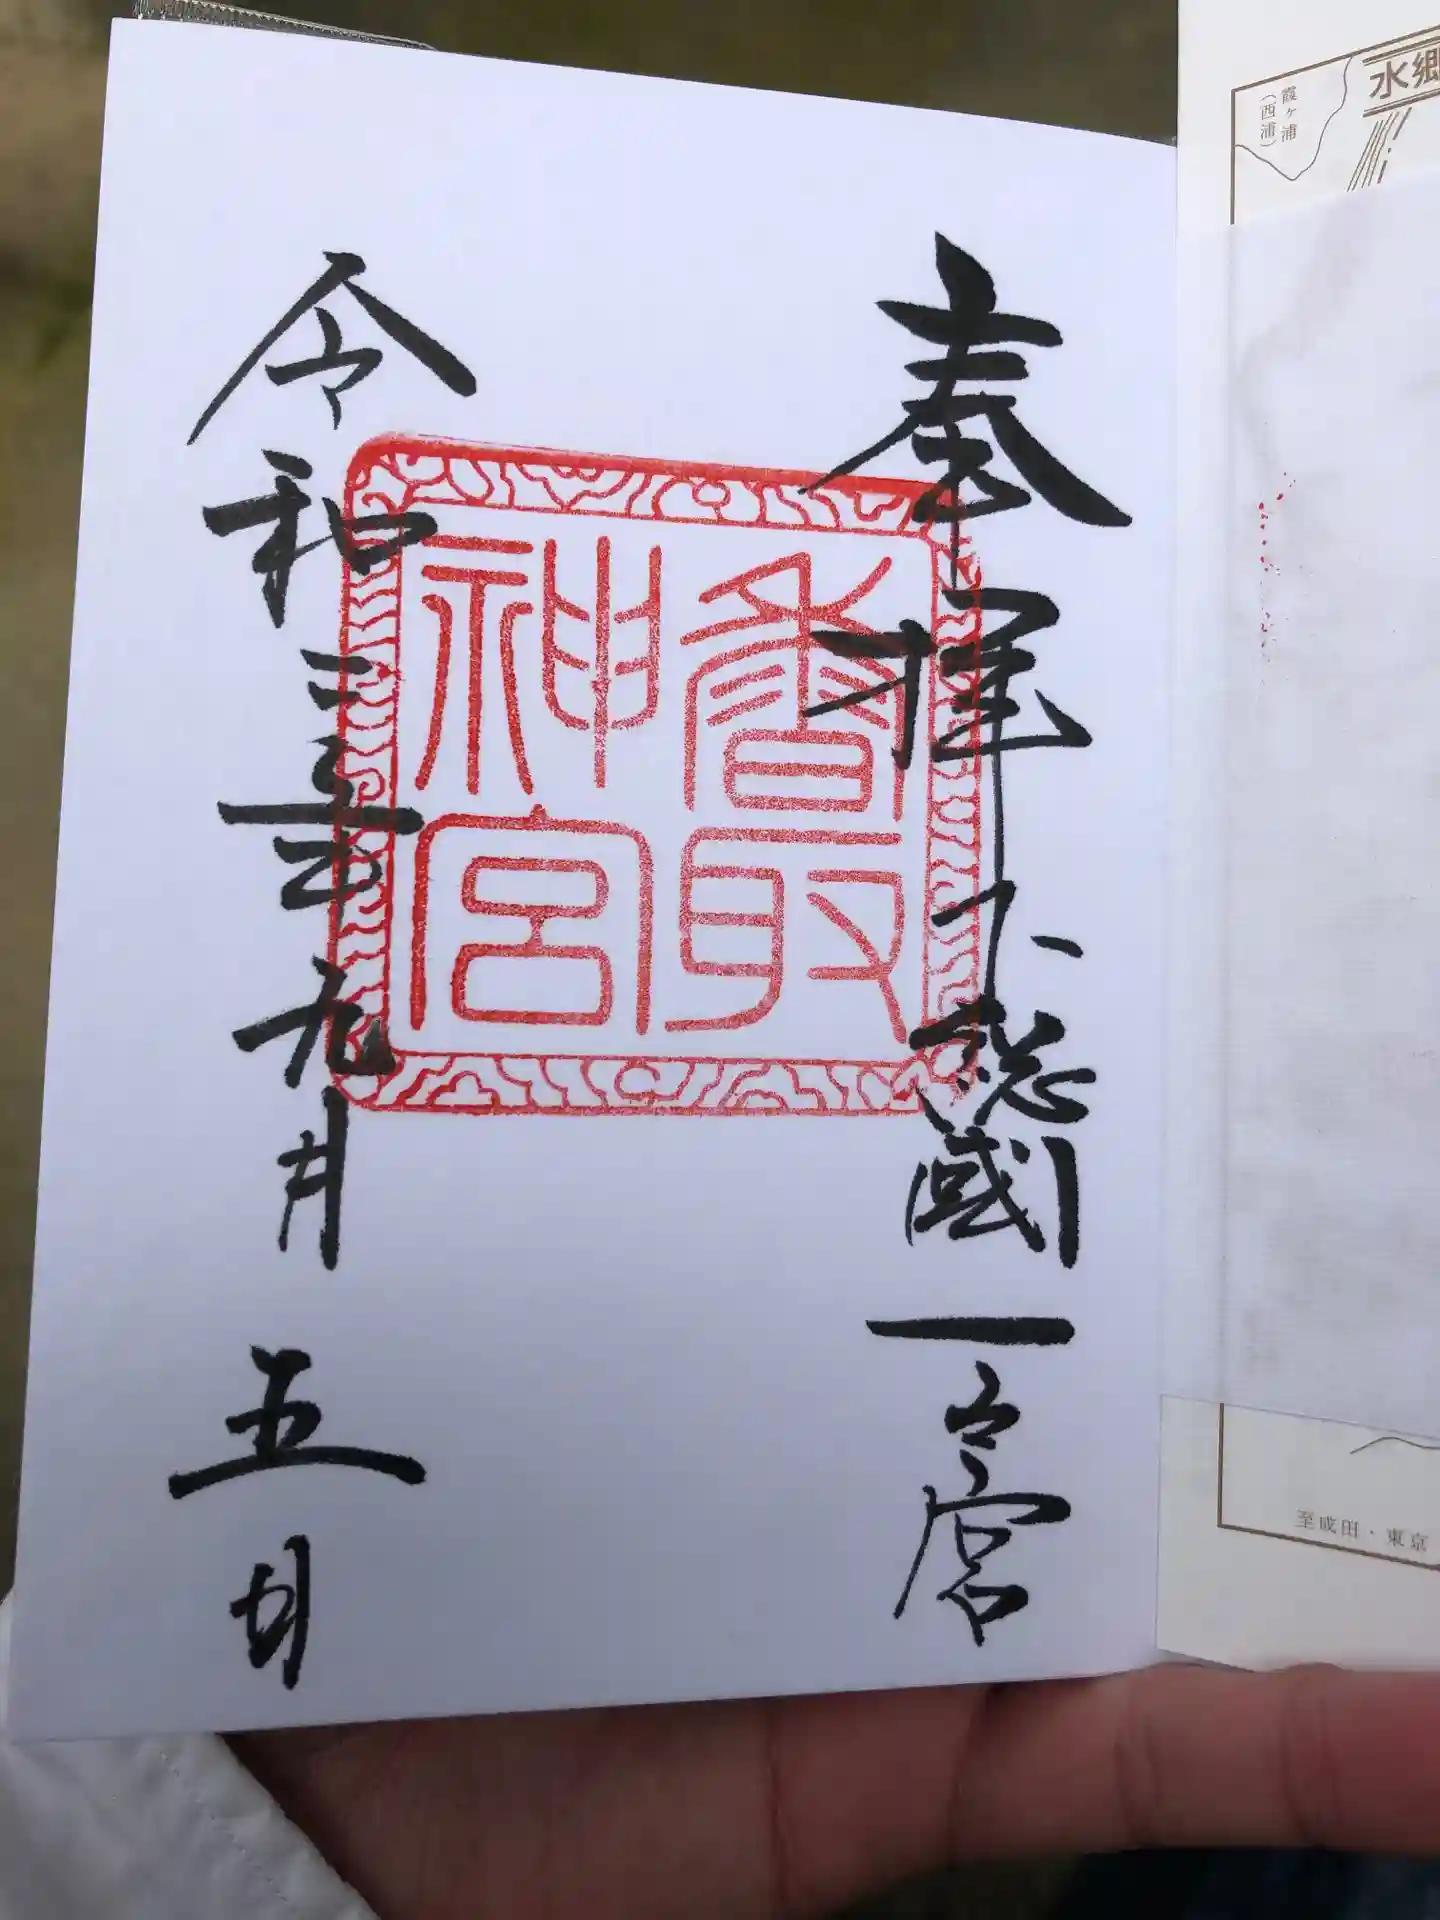 水郷
霞ヶ浦
(西浦)
至成田・東京
奉拝 下総國一之宮
香取
神宮
令和三年九月五日